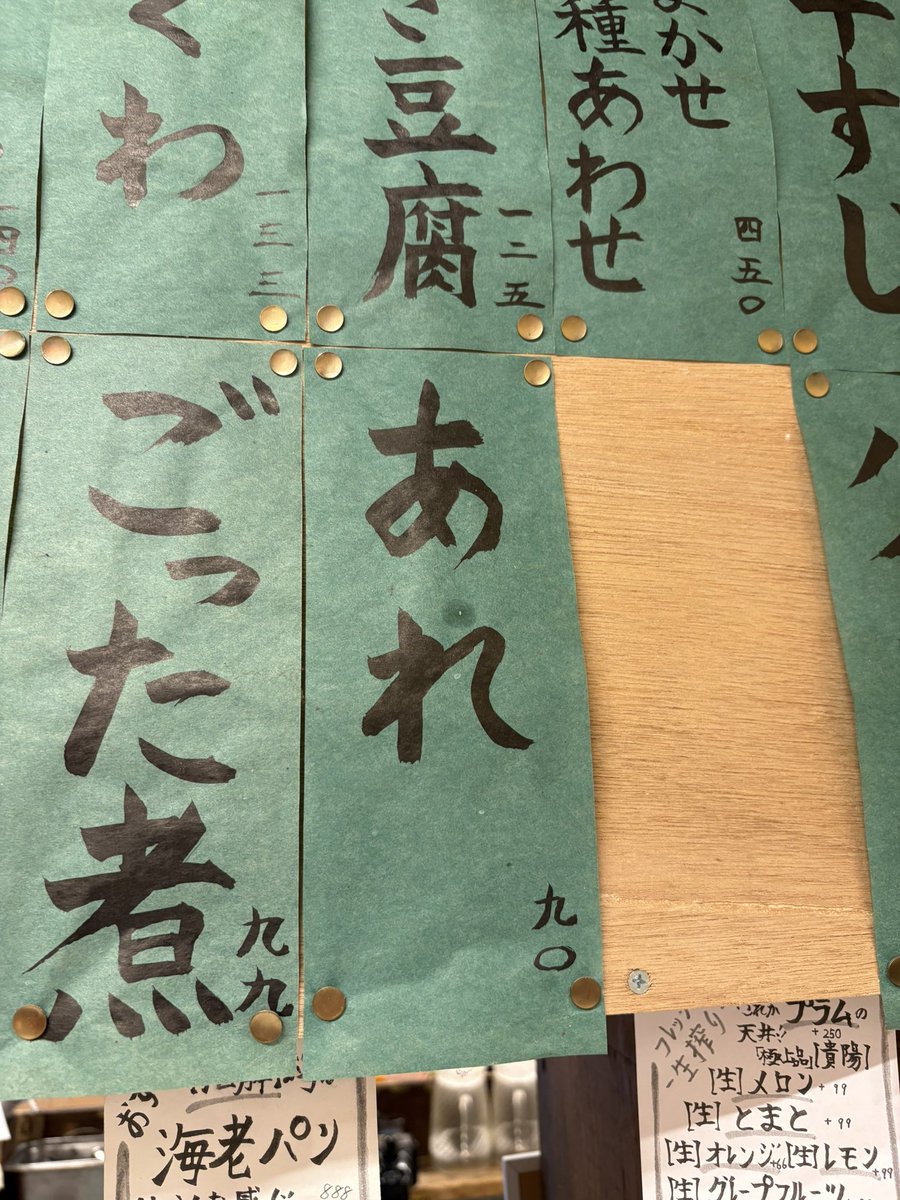 すじ
まかせ
種あわせ
四五〇
豆腐
一二五
くわ
一三三
四〇
あれ
九〇
ごった煮
九九
海老パン
888
生搾り
プラムの
天井!! +250
「極上品」【貴陽】
【生】メロン +99
【生】とまと +99
【生】オレンジ+66【生】レモン+99
【生】グレープフルーツ